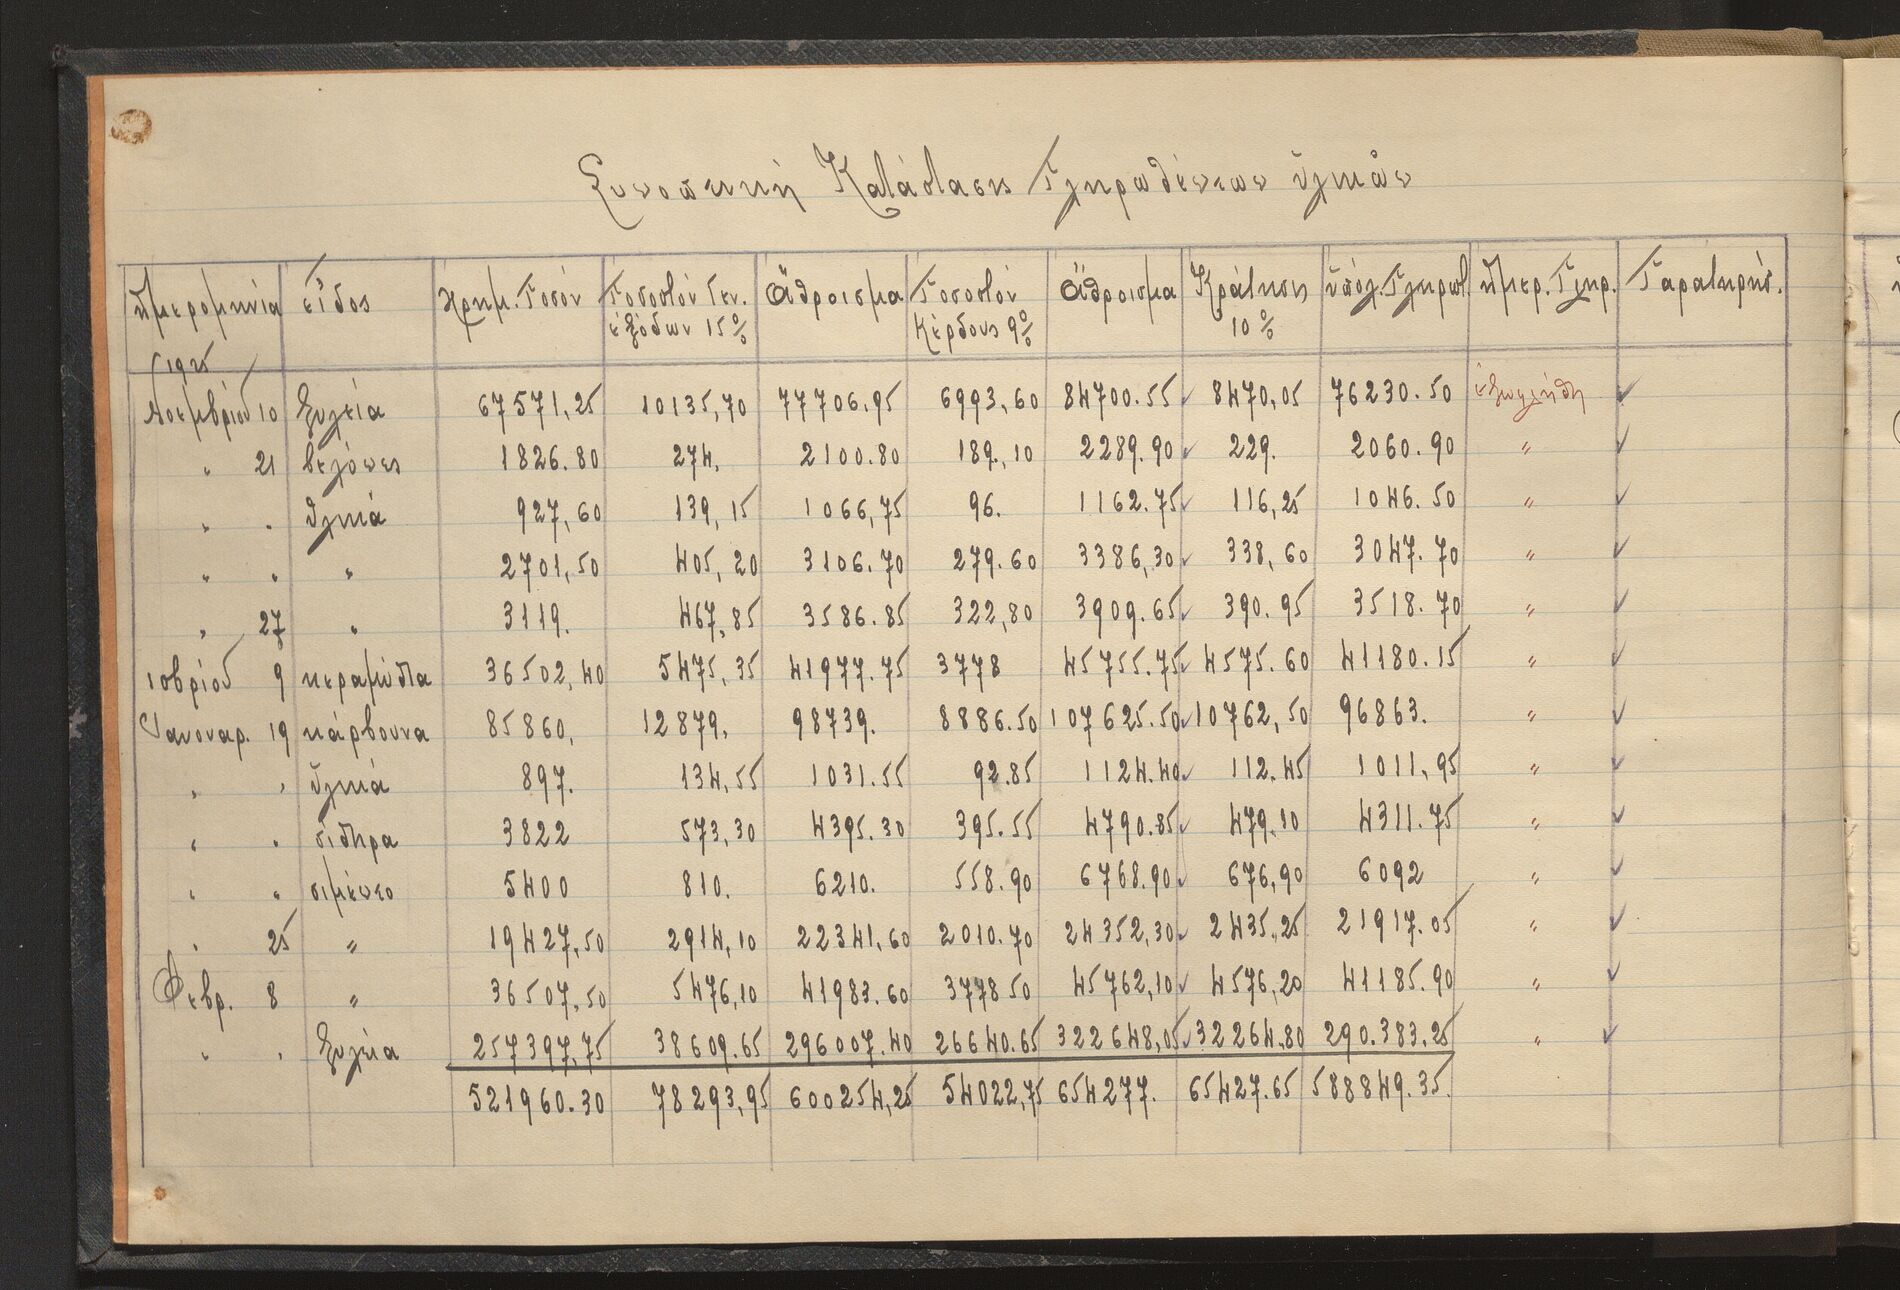 Συνοπτική Κατάστασις Πληρωθέντων ὑλικῶν
Ἡμερομηνία εἶδος Χρημ. Ποσόν Ποσοστόν Γεν. ἐξόδων 15% Ἄθροισμα Ποσοστόν Κέρδους 9% Ἄθροισμα Κράτησις 10% ὑπόλ. Πληρωτ. ἡμερ. Πληρ. Παρατηρήσ.
1925
Νοεμβρίου 10 ξυλεία 67571,25 10135,70 77706.95 6993,60 84700.55 ✓ 8470,05 76230.50 ἐξωφλήθη ✓
" 21 βελόνες 1826.80 274. 2100.80 189.,10 2289.90 ✓ 229. 2060.90 " ✓
" " ὑλικά 927,60 139,15 1066,75 96. 1162.75 ✓ 116,25 1046.50 " ✓
" " " 2701,50 405,20 3106.70 279.60 3386,30 ✓ 338,60 3047.70 " ✓
" 27 " 3119. 467,85 3586.85 322,80 3909.65 ✓ 390.95 3518.70 " ✓
10βρίου 9 κεραμύδια 36502,40 5475,35 41977.75 3778 45755.75 ✓ 4575.60 41180.15 " ✓
Ἰανουαρ. 19 κάρβουνα 85860, 12879, 98739. 8886.50 107625.50 ✓ 10762,50 96863. " ✓
" " ὑλικά 897. 134,55 1031.55 92.85 1124.40 ✓ 112.45 1011,95 " ✓
" " σίδηρα 3822 573,30 4395.30 395.55 4790.85 ✓ 479,10 4311.75 " ✓
" " σιμέντο 5400 810. 6210. 558.90 6768.90 ✓ 676,90 6092 " ✓
" 25 " 19427,50 2914,10 22341,60 2010.70 24352,30 ✓ 2435,25 21917.05 " ✓
Φεβρ. 8 " 36507,50 5476,10 41983.60 3778 50 45762,10 ✓ 4576,20 41185.90 " ✓
" " ξυλεία 257397,75 38609.65 296007.40 26640.65 322648,05 ✓ 32264,80 290.383,25 " ✓
521960.30 78293,95 600254,25 54022,75 654277. 65427.65 588849.35.